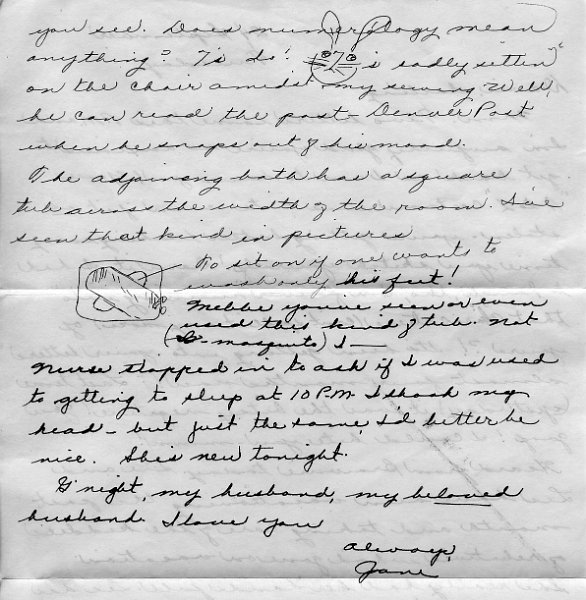 you see. Does numerology mean
anything? 'Tis so! is sadly sittin'
on the chair amidst my sewing. Well,
he can read the post - Denver Post
when he snaps out of his mood.
The adjoining bath has a square
tub across the width of the room. I've
seen that kind in pictures
To sit on if one wants to
wash only his feet!
Mebbe you've seen or even
used this kind of tub. Not
(mosquito) I —
Nurse stopped in to ask if I was used
to getting to sleep at 10 P.M. I shook my
head - but just the same, I'd better be
nice. She's new tonight.
G'night, my husband, my beloved
husband. I love you
always,
Jane